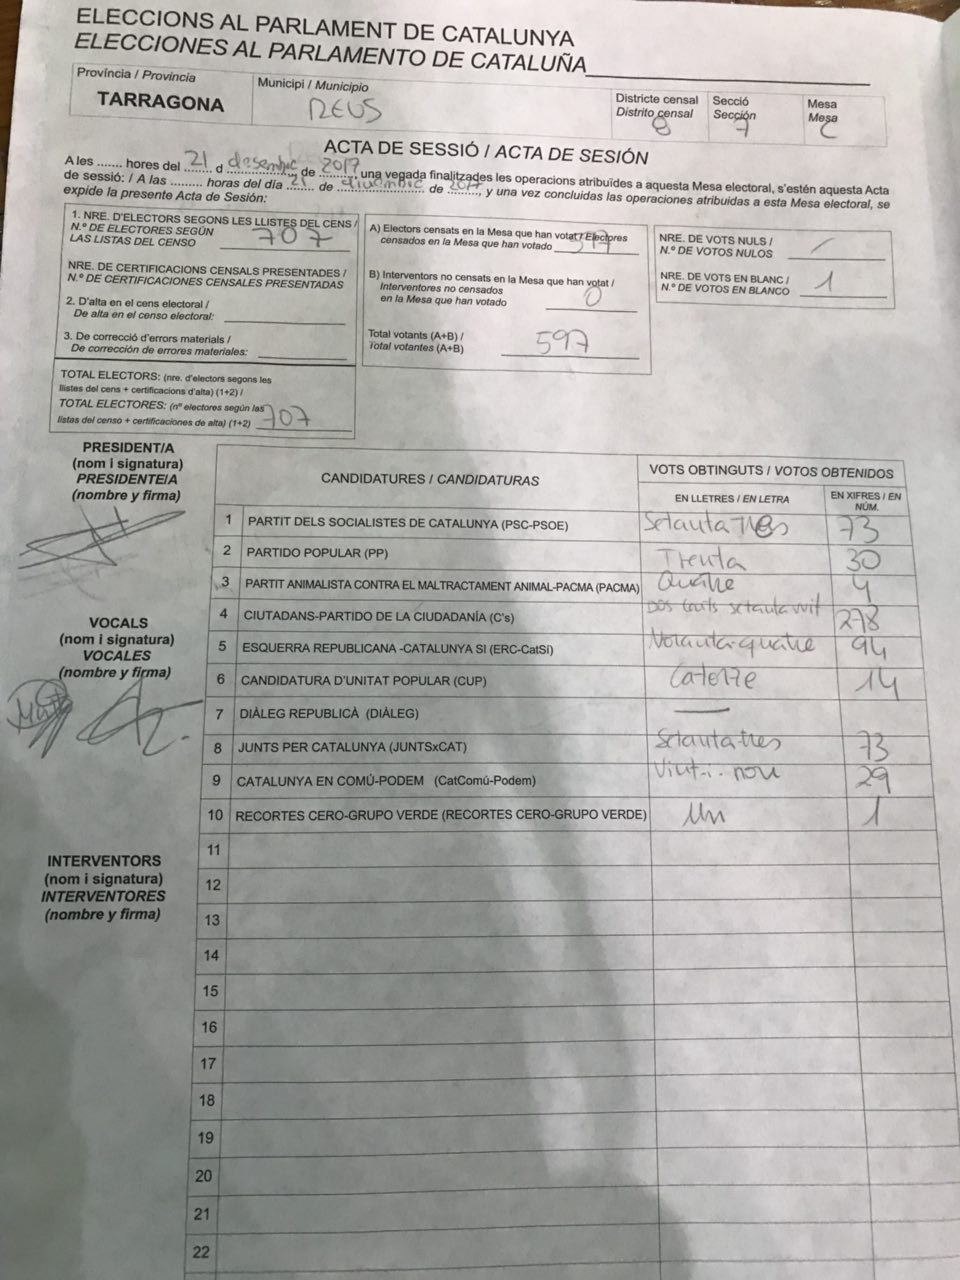 ELECCIONS AL PARLAMENT DE CATALUNYA
ELECCIONES AL PARLAMENTO DE CATALUÑA
Província / Provincia
TARRAGONA
Municipi / Municipio
REUS
Districte censal
Distrito censal
8
Secció
Sección
7
Mesa
Mesa
C
ACTA DE SESSIÓ / ACTA DE SESIÓN
A les ....... hores del 21 d desembre de 2017, una vegada finalitzades les operacions atribuïdes a aquesta Mesa electoral, s'estén aquesta Acta
de sessió: / A las ........ horas del día 21 de diciembre de 2017, y una vez concluidas las operaciones atribuidas a esta Mesa electoral, se
expide la presente Acta de Sesión:
1. NRE. D'ELECTORS SEGONS LES LLISTES DEL CENS /
N.º DE ELECTORES SEGÚN
LAS LISTAS DEL CENSO 707
NRE. DE CERTIFICACIONS CENSALS PRESENTADES /
N.º DE CERTIFICACIONES CENSALES PRESENTADAS
2. D'alta en el cens electoral /
De alta en el censo electoral:
3. De correcció d'errors materials /
De corrección de errores materiales:
TOTAL ELECTORS: (nre. d'electors segons les
llistes del cens + certificacions d'alta) (1+2) /
TOTAL ELECTORES: (nº electores según las
listas del censo + certificaciones de alta) (1+2) 707
A) Electors censats en la Mesa que han votat / Electores
censados en la Mesa que han votado 597
B) Interventors no censats en la Mesa que han votat /
Interventores no censados
en la Mesa que han votado 0
Total votants (A+B) /
Total votantes (A+B) 597
NRE. DE VOTS NULS /
N.º DE VOTOS NULOS
NRE. DE VOTS EN BLANC /
N.º DE VOTOS EN BLANCO 1
PRESIDENT/A
(nom i signatura)
PRESIDENTE/A
(nombre y firma)
VOCALS
(nom i signatura)
VOCALES
(nombre y firma)
INTERVENTORS
(nom i signatura)
INTERVENTORES
(nombre y firma)
CANDIDATURES / CANDIDATURAS
VOTS OBTINGUTS / VOTOS OBTENIDOS
EN LLETRES / EN LETRA
EN XIFRES / EN
NÚM.
1 PARTIT DELS SOCIALISTES DE CATALUNYA (PSC-PSOE) Setanta tres 73
2 PARTIDO POPULAR (PP) Trenta 30
3 PARTIT ANIMALISTA CONTRA EL MALTRACTAMENT ANIMAL-PACMA (PACMA) Quatre 4
4 CIUTADANS-PARTIDO DE LA CIUDADANÍA (C's) Dos cents setanta vuit 278
5 ESQUERRA REPUBLICANA -CATALUNYA SI (ERC-CatSí) Noranta-quatre 94
6 CANDIDATURA D'UNITAT POPULAR (CUP) Catorze 14
7 DIÀLEG REPUBLICÀ (DIÀLEG) —
8 JUNTS PER CATALUNYA (JUNTSxCAT) Setanta-tres 73
9 CATALUNYA EN COMÚ-PODEM (CatComú-Podem) Vint-i-nou 29
10 RECORTES CERO-GRUPO VERDE (RECORTES CERO-GRUPO VERDE) Un 1
11
12
13
14
15
16
17
18
19
20
21
22